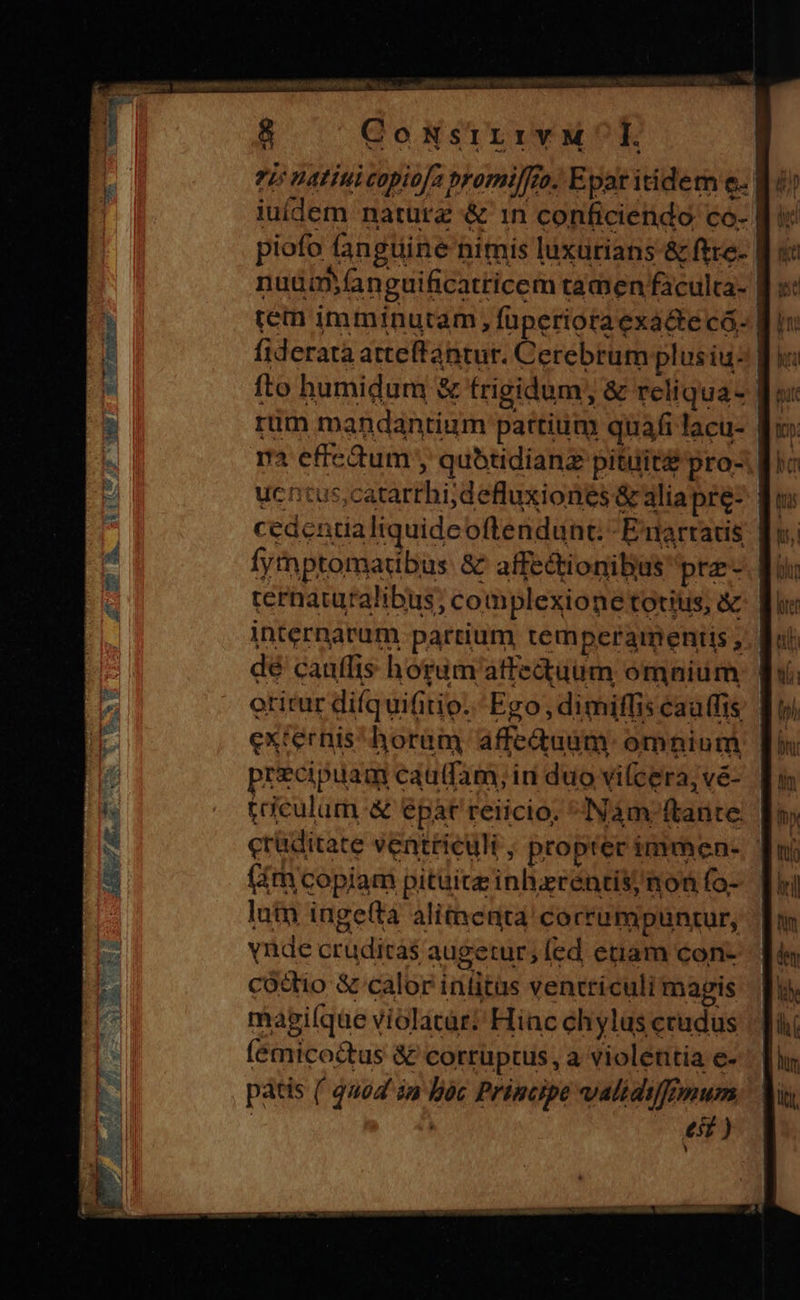 8 CONSILIVM I.
ris natiui copiosa promissio. Epar itidem e-
iusdem naturæ & in conficiendo co-
pioso sanguine nimis luxurians & stre-
nuum, sanguificatricem tamen faculta-
tem imminutam, superiora exacte cõ-
siderata attestantur. Cerebrum plus iu-
sto humidum & frigidum, & reliqua-
rum mandantium partium quasi lacu-
na effectum, quòtidianæ pituitæ pro-
uentus, catarrhi, defluxiones & alia præ-
cedentia liquide ostendunt. Enarratis
symptomatibus & affectionibus præ-
ternaturalibus, complexione totius, &
internarum partium temperamentis,
de caussis horum affectuum omnium
oritur disquisitio. Ego, dimissis caussis
externis horum affectuum omnium
præcipuam caussam, in duo viscera, vẽ-
triculum & epar reiicio. Nam stante
cruditate ventriculi, propter immen-
sam copiam pituitæ inhærentis, non so-
lum ingesta alimenta corrumpuntur,
vnde cruditas augetur, sed etiam con-
coctio & calor insitus ventriculi magis
magisque violatur. Hinc chylus crudus
semicoctus & corruptus, a violentia e-
patis ( quod in hoc Principe validissimum
est )